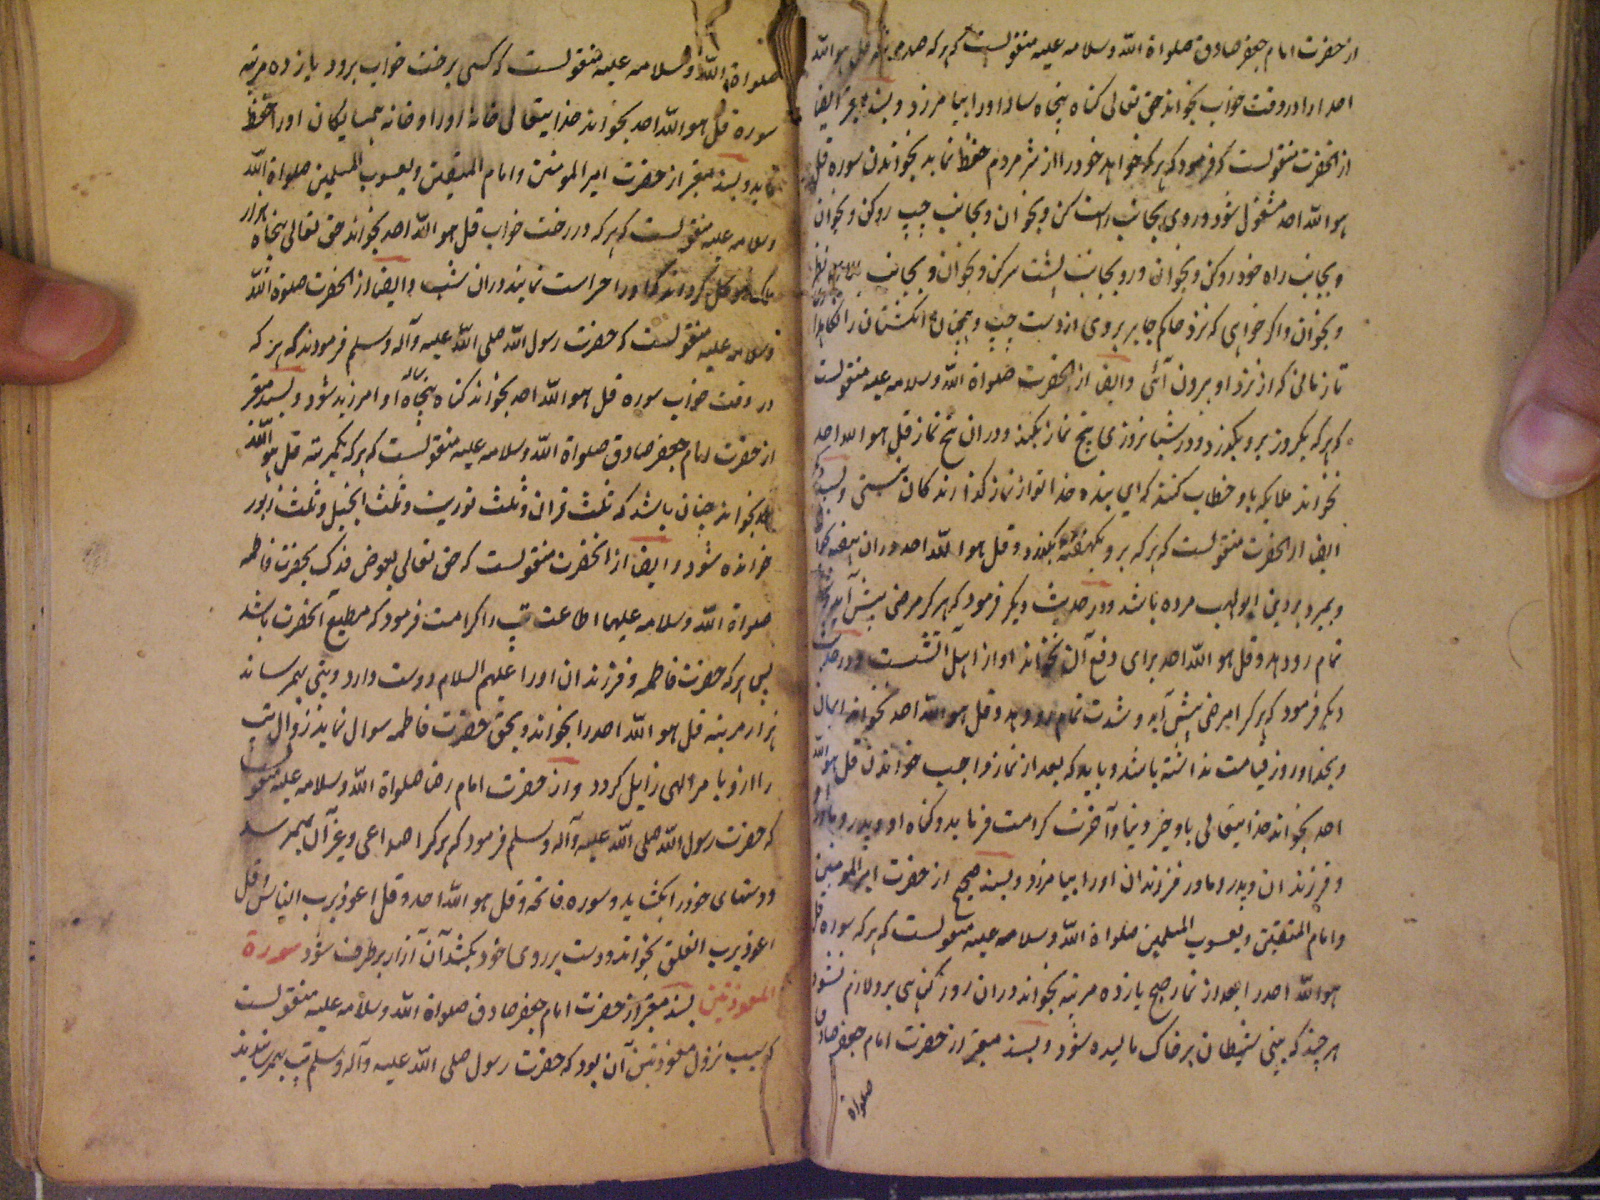 از حضرت امام جعفر صادق صلواة الله وسلامه علیه منقولست که هرکه صد مرتبه قل هو الله
احد را در وقت خواب بخواند حق تعالی کناه پنجاه ساله اورا بیامرزد و بسند معتبر ایضا
از انحضرت منقولست که فرمود که هرکه خواهد خود را از شر مردم حفظ نماید بخواندن سوره قل
هو الله احد مشغول شود و روی بجانب راست کن و بخوان و بجانب چپ رو کن و بخوان
و بجانب راه خود رو کن و بخوان و رو بجانب پشت سر کن و بخوان و بجانب
و بخوان و اکر خواهی که نزد حاکم جابر بروی از دست چپ و همچنان انکشتان را نکاهدار
تا زمانی که از نزد او بیرون آئی و ایضا از انحضرت صلواة الله وسلامه علیه منقولست
که هرکه یکروز برو بکذرد و در شبانروزی پنج نماز بکند و دران پنج نماز قل هو الله احد
نخواند ملایکه باو خطاب کنند که ای بنده خدا تو از نماز کذارندکان نیستی و بسند
ایضا از انحضرت منقولست که هرکه برو یکهفته بکذرد و قل هو الله احد دران هفته نخواند
و بمیرد بر دین ابولهب مرده باشد و در حدیث دیکر فرمود که هرکرا مرضی پیش آید و
تمام رو دهد و قل هو الله احد برای دفع آن نخواند او از اهل آتشست و در حدیث
دیکر فرمود که هرکرا مرضی پیش آید و شدت تمام رو دهد و قل هو الله احد نخواند ایمان
و بخدا و روز قیامت نداشته باشد و باید که بعد از نماز واجب خواندن قل هو الله
احد بخواند خدایتعالی باو خیر دنیا و آخرت کرامت فرماید و کناه او و پدر و مادر
و فرزندان و پدر و مادر فرزندان اورا بیامرزد و بسند صحیح از حضرت امیر المومنین
و امام المتقین و یعسوب المسلمین صلواة الله وسلامه علیه منقولست که هرکه سوره قل
هو الله احد را بعد از نماز صبح یازده مرتبه بخواند دران روز کناهی برو لازم نشود
هرچند که بینی شیطان بر خاک مالیده شود و بسند معتبر از حضرت امام جعفر صادق
صلواة
صلواة الله وسلامه علیه منقولست که کسی برخت خواب برود یازده مرتبه
سوره قل هو الله احد بخواند خدایتعالی خانه اورا و خانه همسایکان اورا حفظ
نماید و بسند معتبر از حضرت امیر المومنین و امام المتقین و یعسوب المسلمین صلواة الله
وسلامه علیه منقولست که هرکه در رخت خواب قل هو الله احد بخواند حق تعالی پنجاه هزار
ملک موکل کرداند که اورا حراست نمایند دران شب و ایضا از انحضرت صلوة الله
وسلامه علیه منقولست که حضرت رسول الله صلی الله علیه وآله وسلم فرمودند که هرکه
در وقت خواب سوره قل هو الله احد بخواند کناه پنجاه ساله او امرزیده شود و بسند معتبر
از حضرت امام جعفر صادق صلواة الله وسلامه علیه منقولست که هرکه یکمرتبه قل هو الله
احد بخواند چنان باشد که ثلث قران و ثلث توریت و ثلث انجیل و ثلث زبور
خوانده شود و ایضا از انحضرت منقولست که حق تعالی بعوض فدک بحضرت فاطمه
صلواة الله وسلامه علیها اطاعت تب را کرامت فرمود که مطیع آنحضرت باشد
پس هرکه حضرت فاطمه و فرزندان اورا علیهم السلام دوست دارد و تبی بهمرساند
هزار مرتبه قل هو الله احد را بخواند و بحق حضرت فاطمه سوال نماید زوال تب
را از و بامر الهی زایل کردد و از حضرت امام رضا صلواة الله وسلامه علیه منقولست
که حضرت رسول الله صلی الله علیه وآله وسلم فرمود که هرکرا صداعی و غیر آن بهمرسد
و دستهای خود را بکشاید و سوره فاتحه و قل هو الله احد و قل اعوذ برب الناس و قل
اعوذ برب الفلق بخواند و دست بر روی خود بکشد آن آزار بر طرف شود سورة
المعوذتین بسند معتبر از حضرت امام جعفر صادق صلواة الله وسلامه علیه منقولست
که سبب نزول معوذتین آن بود که حضرت رسول صلی الله علیه وآله وسلم تب بهمرسانیدند